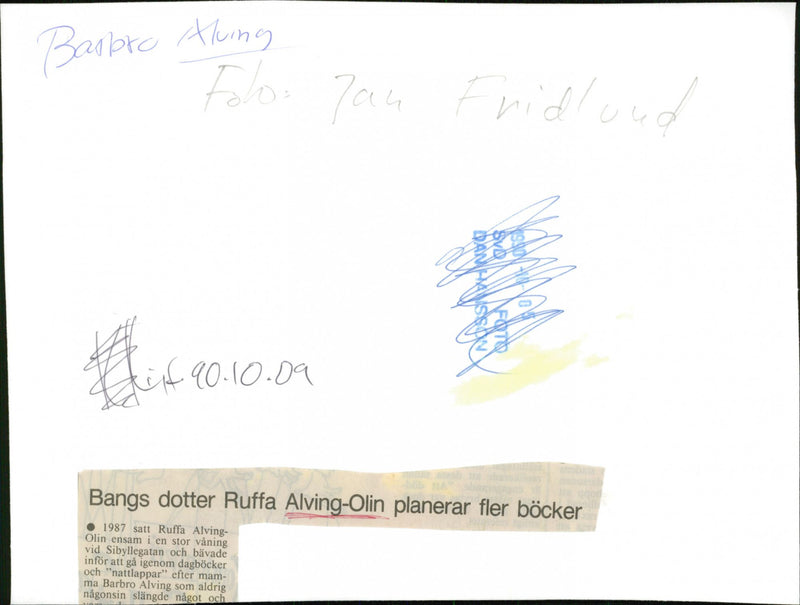 Barbro Alving
Foto: Jan Fridlund
SVD FOTO
DAN HANSSON
90.10.09
Bangs dotter Ruffa Alving-Olin planerar fler böcker
● 1987 satt Ruffa Alving-
Olin ensam i en stor våning
vid Sibyllegatan och bävade
inför att gå igenom dagböcker
och "nattlappar" efter mam-
ma Barbro Alving som aldrig
någonsin slängde något och